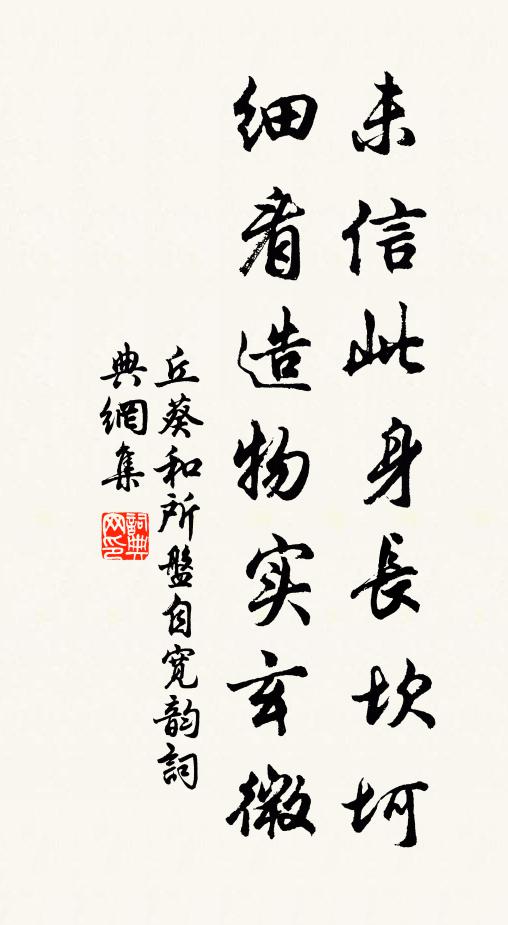 未信此身長坎坷
细看造物实玄微
丘葵和所盤自寛韵詞
典網集
詞典網印